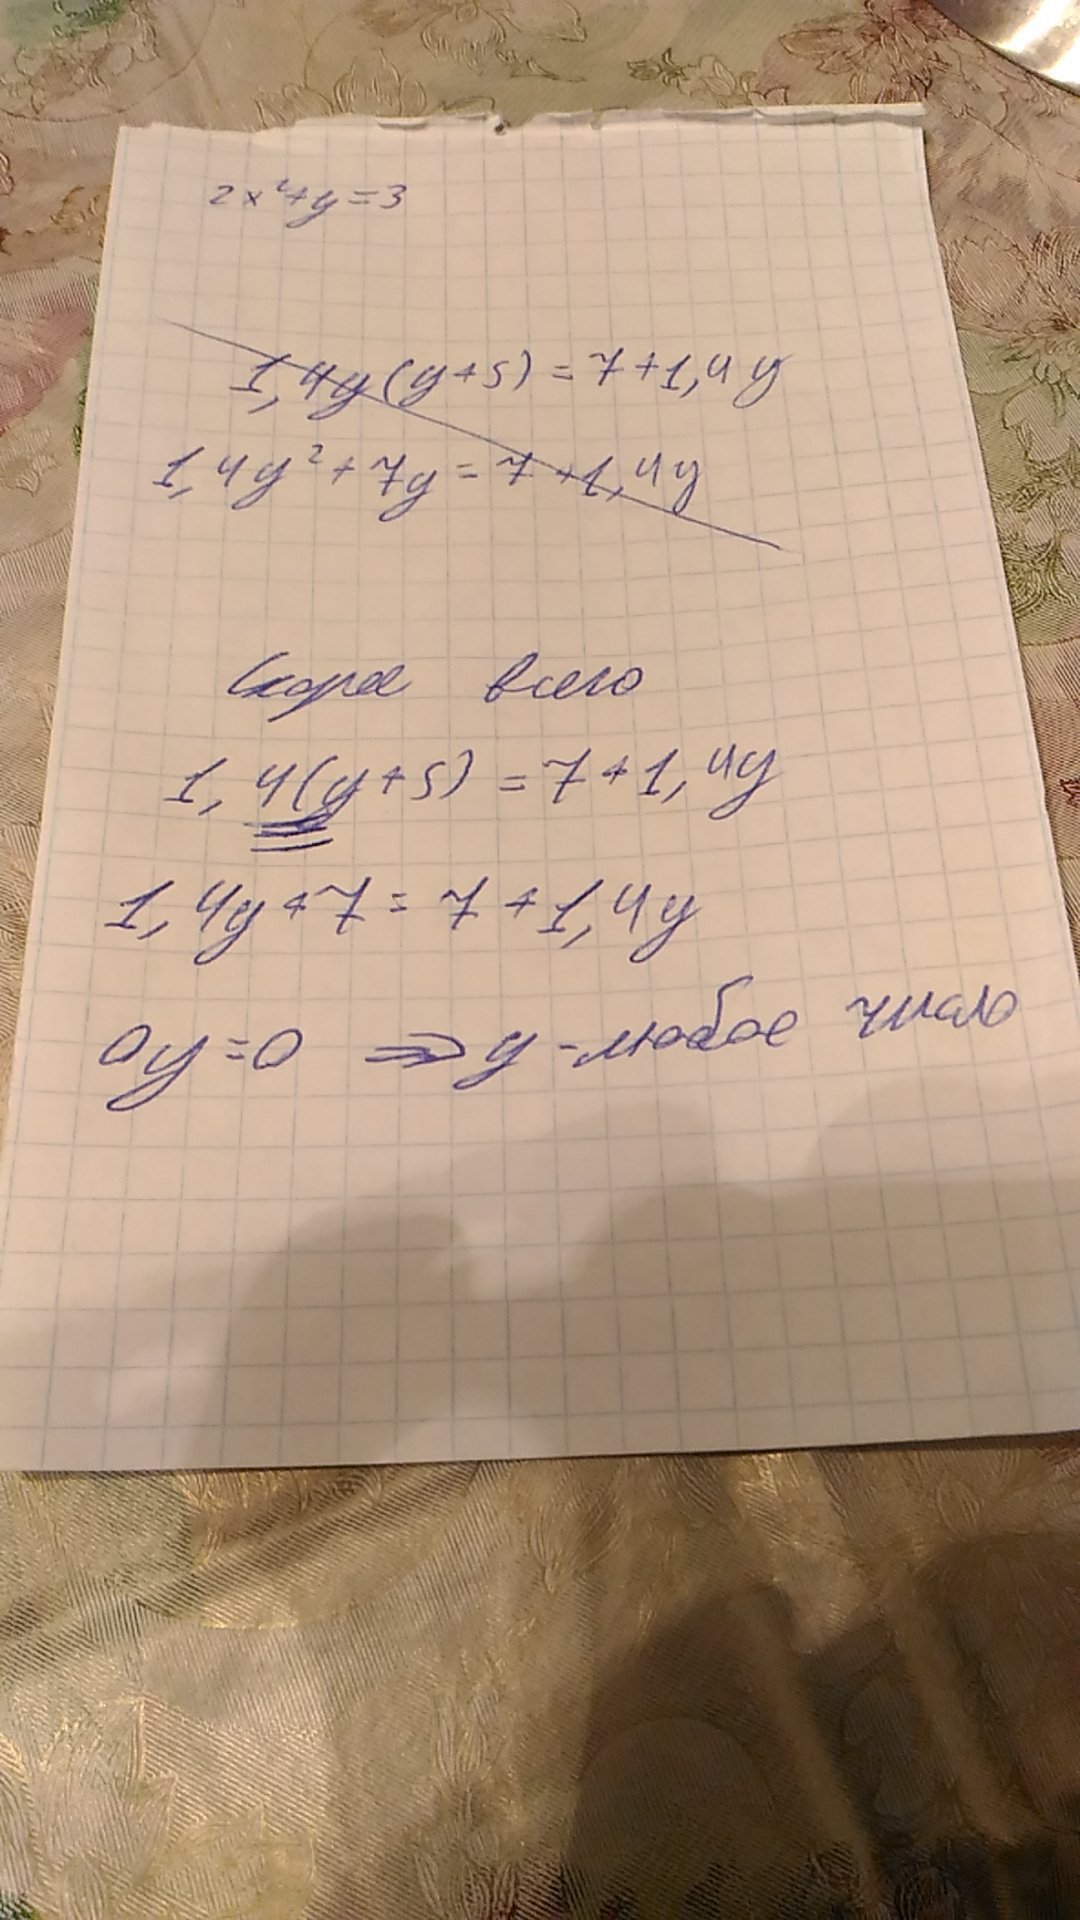 2x²+y=3
1,4y(y+5)=7+1,4y
1,4y²+7y=7+1,4y
Скорее всего
1,4(y+5)=7+1,4y
1,4y+7=7+1,4y
0y=0 => y - любое число